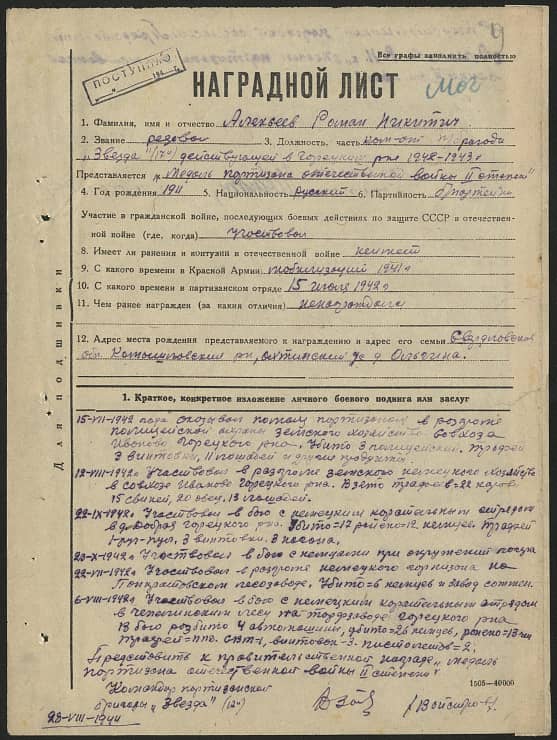 Все графы заполнить полностью
ПОСТУПИЛО
НАГРАДНОЙ ЛИСТ
1. Фамилия, имя и отчество Алексеев Роман Никитич
2. Звание рядовой 3. Должность, часть
"Звезда" действующей в Горецком р-не 1942-1943 г
Представляется к "Медаль партизана отечественной войны II степени"
4. Год рождения 1911 5. Национальность русский 6. Партийность
Участие в гражданской войне, последующих боевых действиях по защите СССР и отечествен-
ной войне (где, когда) Участвовал
8. Имеет ли ранения и контузии в отечественной войне не имеет
9. С какого времени в Красной Армии мобилизаций 1941 г
10. С какого времени в партизанском отряде 15 июля 1942 г
11. Чем ранее награжден (за какия отличия)
12. Адрес места рождения представляемого к награждению и адрес его семьи Свердловская
обл. р-н, с д. Ольгина.
Для подшивки
1. Краткое, конкретное изложение личного боевого подвига или заслуг
15-VII-1942 года оказывал помощь партизанам в разгроме
полицейской охраны земского хозяйства совхоза
Иваново Горецкого р-на. Убито 3 полицейских. Трофей
3 винтовки, 11 лошадей и другие продукты.
12-VIII-1942 г Участвовал в разгроме земского немецкого хозяйства
в совхозе Иваново Горецкого р-на. Взято трофеев = 22 коровы
15 свиней, 20 овец, 13 лошадей.
22-IX-1942 г Участвовал в бою с немецким карательным отрядом
в д. Добрая Горецкого р-на. Убито = 17 ранено = 12 немцев, трофей
1-руч-пул, 3 винтовки,
20-X-1942 г Участвовал в бою с немцами при окружении
Участвовал в разгроме немецкого гарнизона на
лесозаводе. Убито = 6 немцев и завод сожжен.
Участвовал в бою с немецким карательным отрядом
в лесу Горецкого р-на
В бою разбито 4 автомашины, убито = 26 немцев, ранено = 13
трофей = винтовок = 3 пистолетов = 2.
Представить к правительственной награде "медаль
партизана отечественной войны II степени"
Командир партизанской
бригады "Звезда"
1505—40000
28-VIII-1944